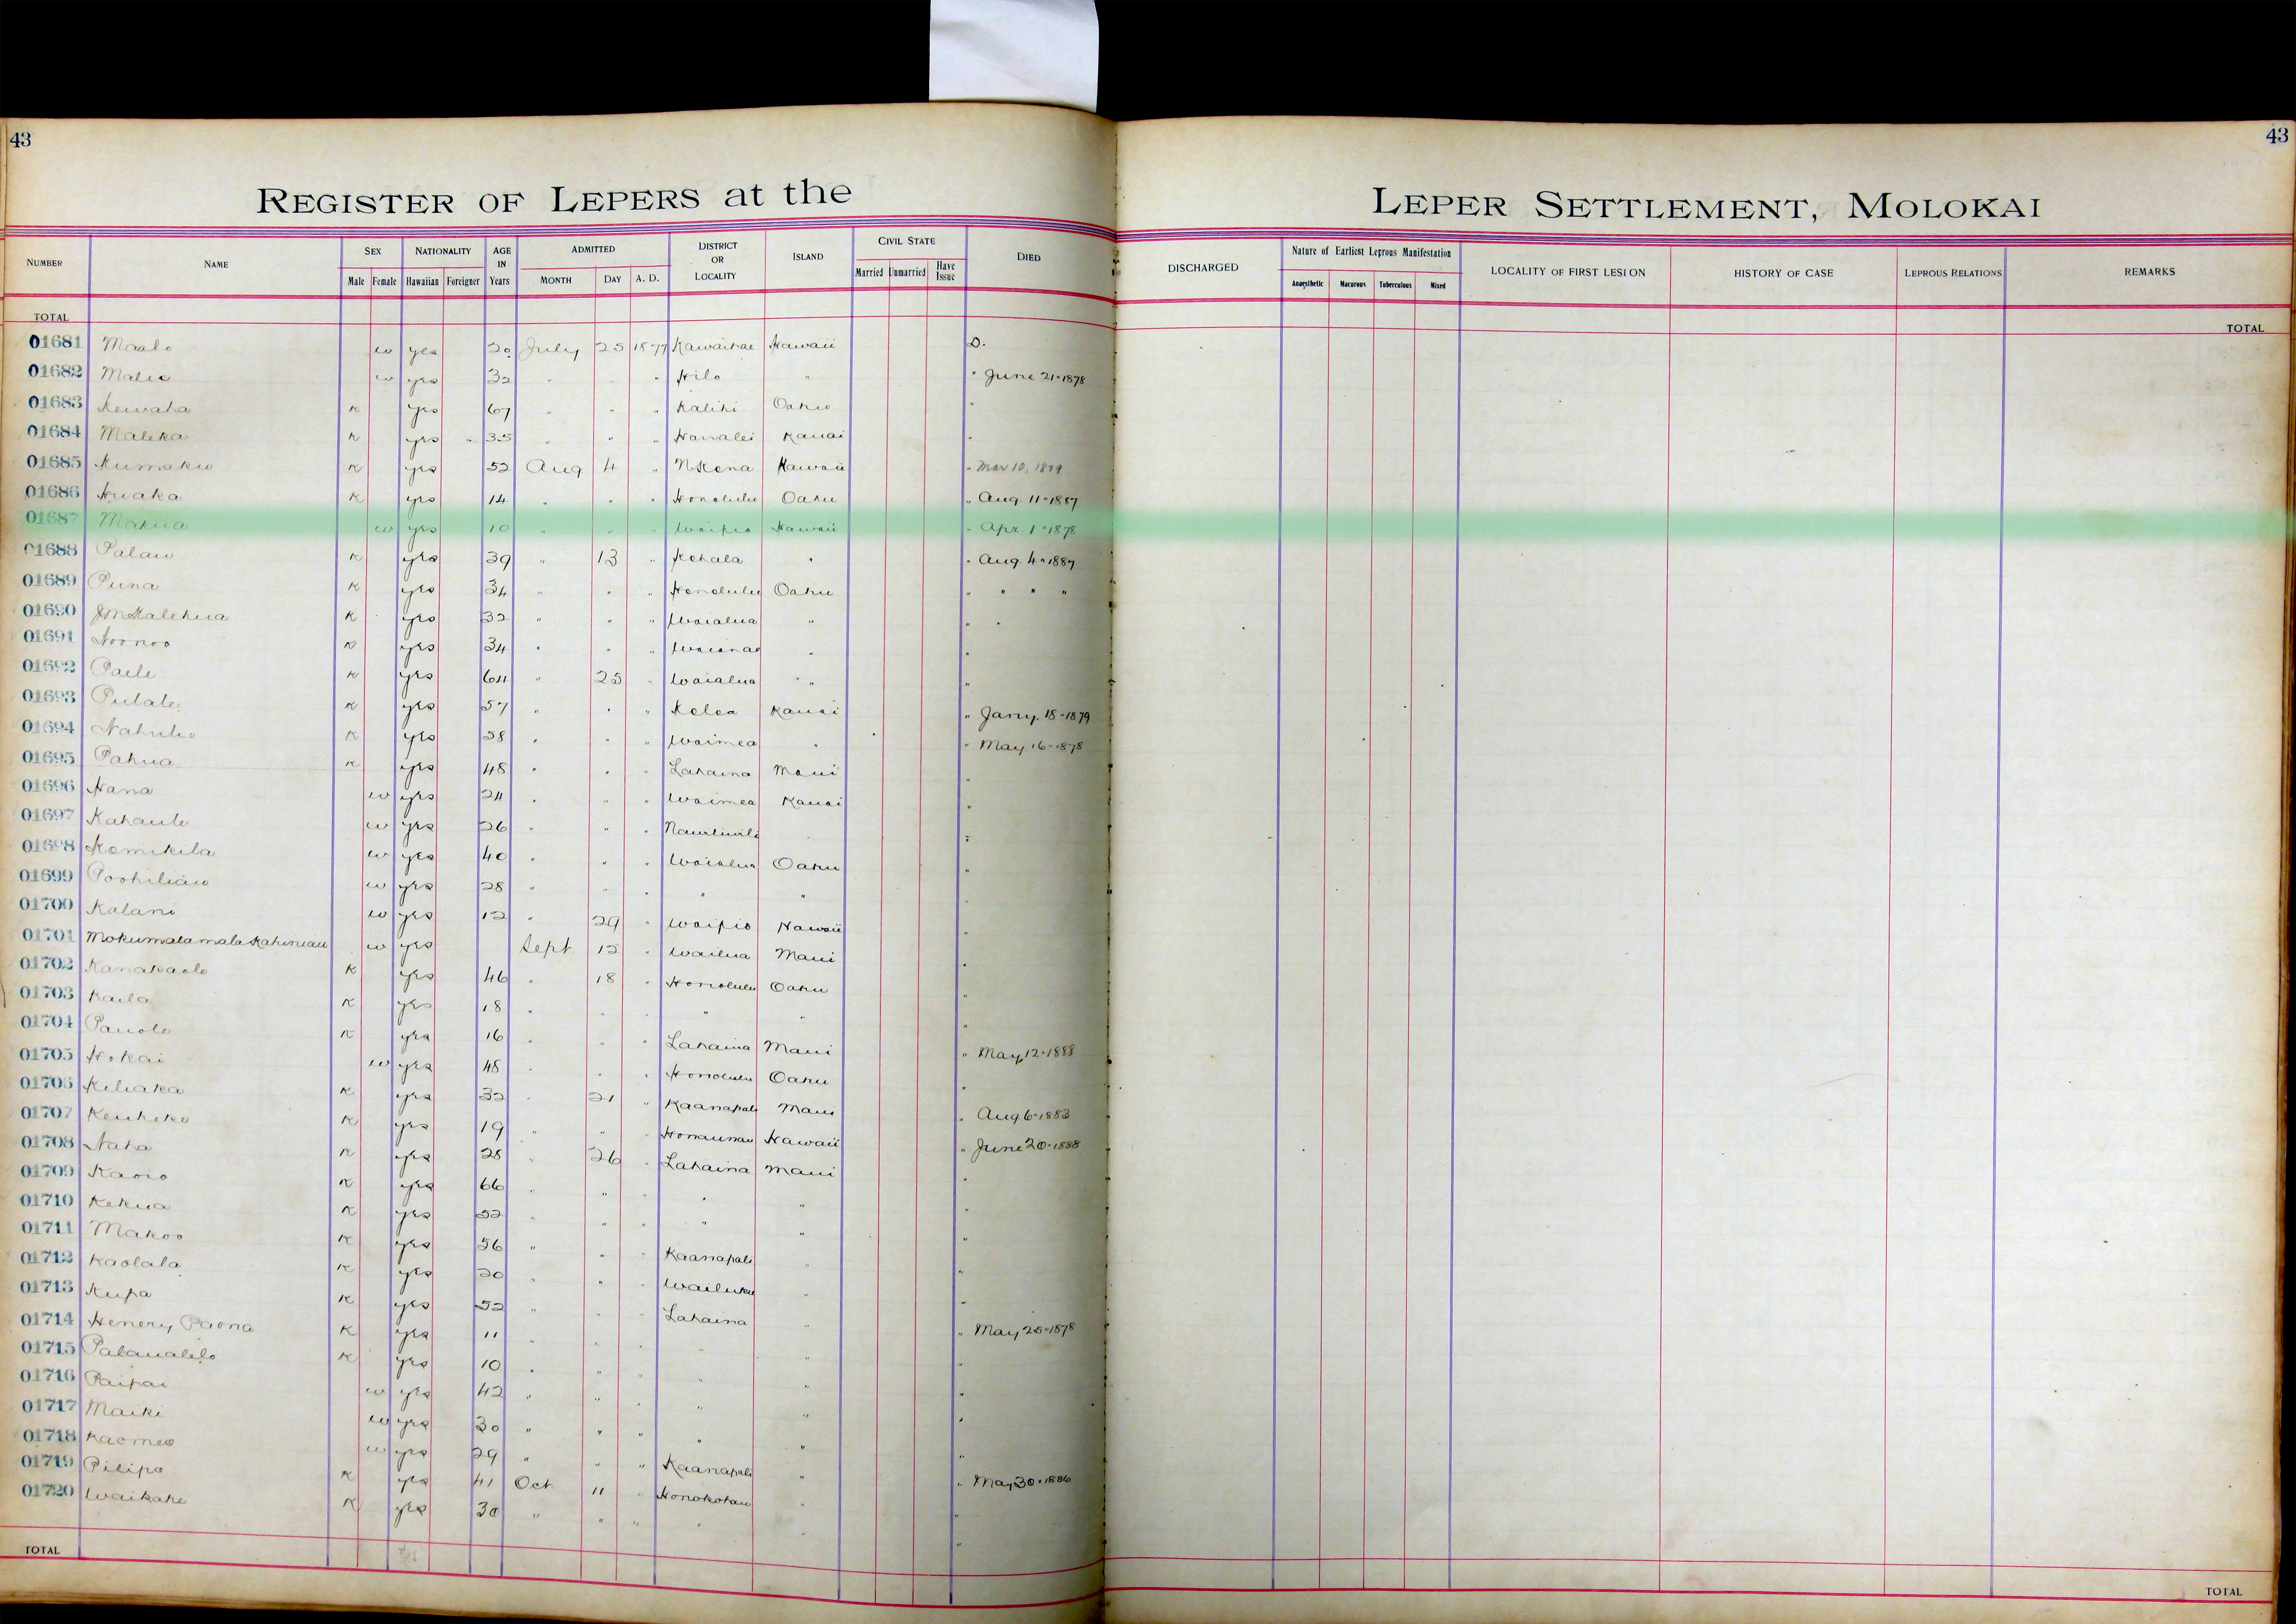 43
43
REGISTER OF LEPERS at the
LEPER SETTLEMENT, MOLOKAI
NUMBER NAME SEX Male Female NATIONALITY Hawaiian Foreigner AGE IN Years ADMITTED MONTH DAY A. D. DISTRICT OR LOCALITY ISLAND CIVIL STATE Married Unmarried Have Issue DIED
DISCHARGED Nature of Earliest Leprous Manifestation Anaesthetic Macurous Tuberculous Mixed LOCALITY OF FIRST LESION HISTORY OF CASE LEPROUS RELATIONS REMARKS
TOTAL
TOTAL
01681 Maalo w yes 20 July 25 1877 Kawaihae Hawaii D.
01682 w yes 32 " " " Hilo " " June 21-1878
01683 Kewaha K yes 67 " " " Kalihi Oahu "
01684 Maleka K yes 35 " " " Hanalei Kauai "
01685 Kumaku K yes 52 Aug 4 " N. Kona Hawaii " Mar 10, 1879
01686 Huaka K yes 14 " " " Honolulu Oahu " Aug. 11-1887
01687 Mahua w yes 10 " " " Waipio Hawaii " Apr. 1-1878
01688 Palau K yes 39 " 13 " Kohala " " Aug. 4-1887
01689 Puna K yes 34 " " " Honolulu Oahu " " " "
01690 J M Kalehua K yes 32 " " " Waialua " " "
01691 Noonoo K yes 34 " " " Waianae " "
01692 Paele K yes 64 " 25 " Waialua " " "
01693 Pulale K yes 57 " " " Kolea Kauai " Jany. 18-1879
01694 K yes 28 " " " Waimea " " May. 16-1878
01695 Pahua K yes 48 " " " Lahaina Maui "
01696 Hana w yes 24 " " " Waimea Kauai "
01697 Kahaule w yes 26 " " " Nawiliwili "
01698 Kamikila w yes 40 " " " Waialua Oahu "
01699 Poohiliau w yes 28 " " " " " "
01700 Kalani w yes 12 " 29 " Waipio Hawaii "
01701 Mokumalamala Kahiniau w yes Sept 12 " Wailua Maui "
01702 Kanakaole K yes 46 " 18 " Honolulu Oahu "
01703 Kaila K yes 18 " " " " " "
01704 Pauole K yes 16 " " " Lahaina Maui " May, 12-1888
01705 Hokai w yes 48 " " " Honolulu Oahu "
01706 Keliaka K yes 32 " 21 " Kaanapali Maui " Aug 6-1883
01707 K yes 19 " " " Honaunau Hawaii " June 20-1888
01708 Naha K yes 28 " 26 " Lahaina Maui "
01709 K yes 66 " " " " " "
01710 Kekua K yes 52 " " " " " "
01711 Makoo K yes 56 " " " Kaanapali " "
01712 Kaolala K yes 20 " " " Wailuku " "
01713 Kupa K yes 52 " " " Lahaina " " May 25-1878
01714 Henery Paona K yes 11 " " " " " "
01715 Palaualelo K yes 10 " " " " " "
01716 Paipai w yes 42 " " " " " "
01717 Maiki w yes 30 " " " " " "
01718 Kaomea w yes 29 " " " Kaanapali " " May 30-1886
01719 Pilipo K yes 41 Oct 11 " Honokohau " "
01720 Waikahe K yes 30 " " " " " "
TOTAL
TOTAL